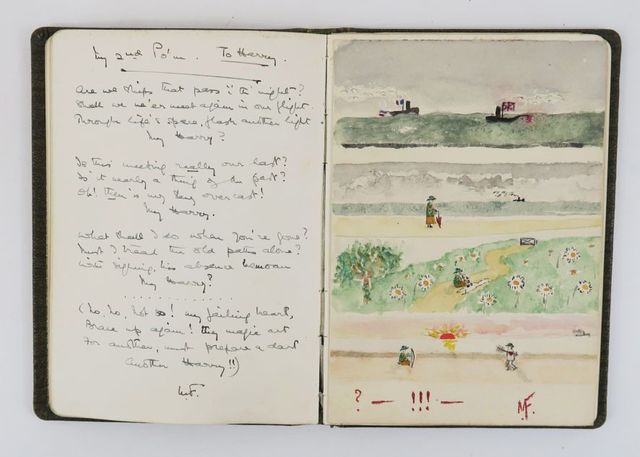 My 2nd Po'm. To Harry.
Are we ships that pass i' the night?
Shall we ne'er meet again in our flight
Through life's space, flash another light
My Harry?
Is this meeting really our last?
Is't nearly a thing of the past?
Oh! then's my sky overcast!
My Harry.
What shall I do when you're gone?
Must I tread the old paths alone?
With sighing, his absence bemoan
My Harry?
(No, no, not so! my failing heart,
Brace up again! thy magic art
For another, must prepare a dart
Another Harry!!)
M.F.
? — !!! —
MF.